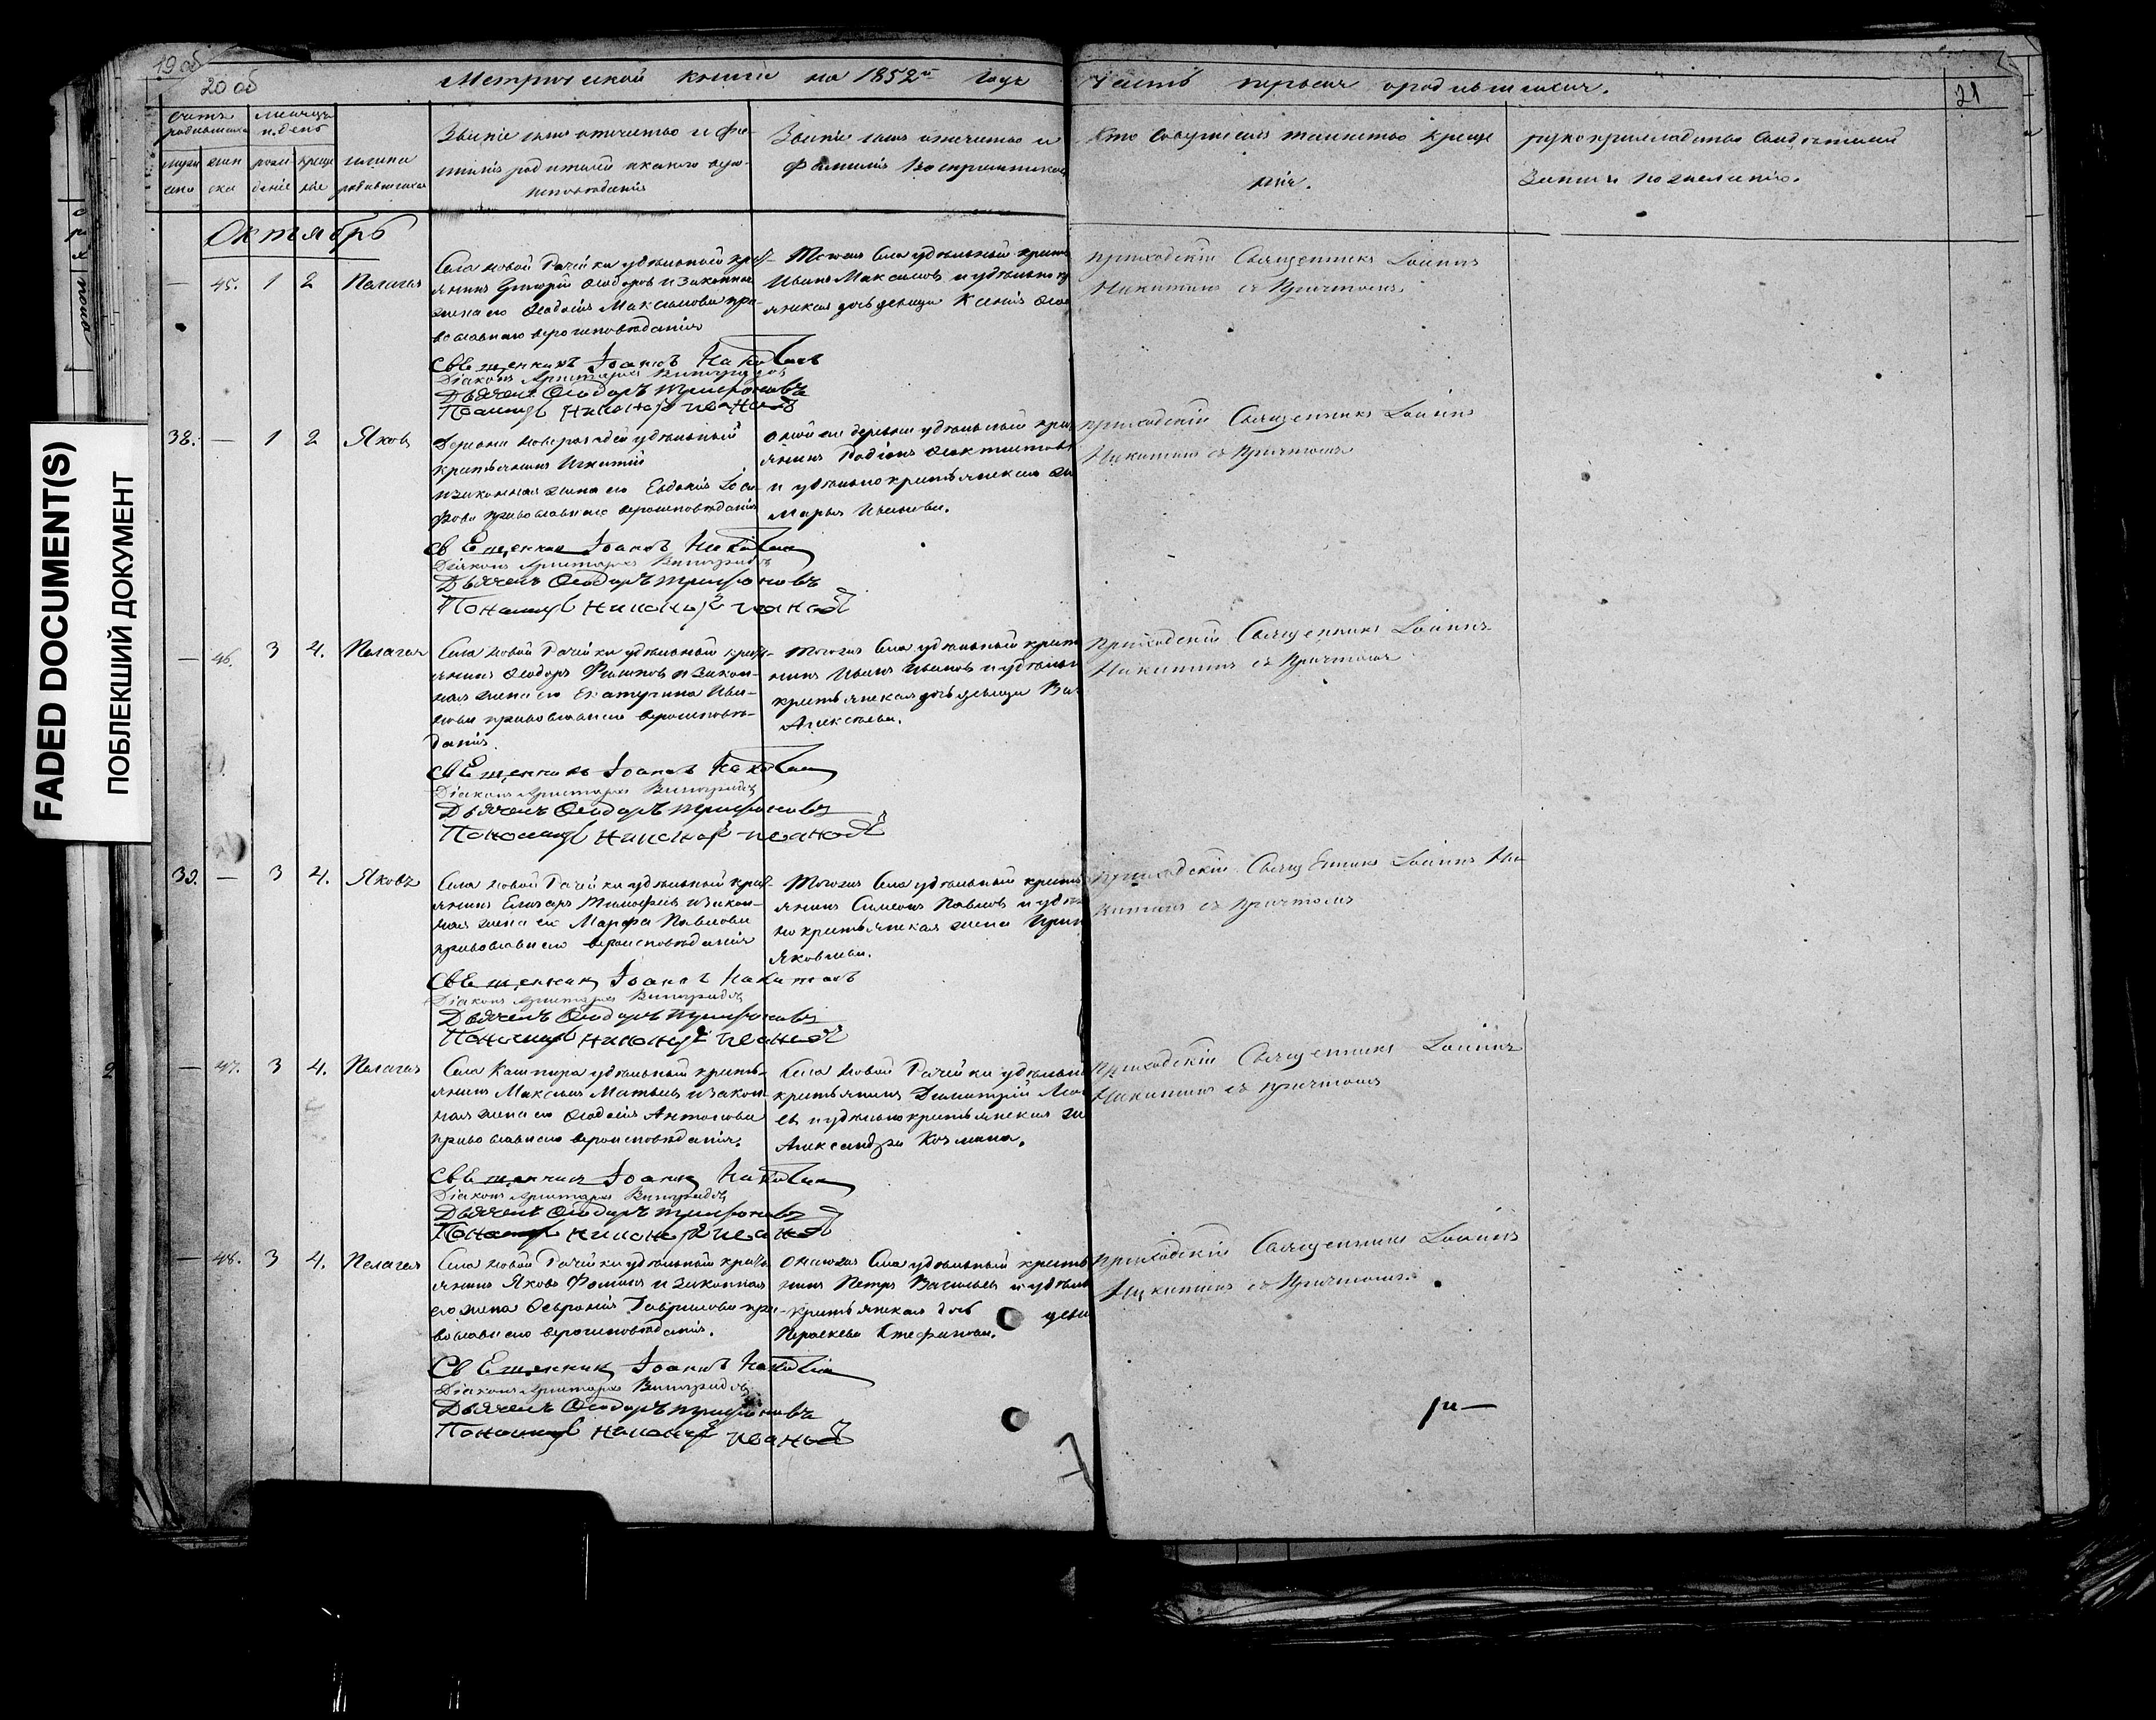 19 об
20 об
Метрической книги на 1852й годъ
Часть первая о родившихся.
21
счетъ родившихся
месяцъ и день
имена родившихся
Званіе имя отчество и фа-
милія родителей и какого веро-
исповѣданія
Званіе имя отчество и
фамилія воспріемниковъ
Кто совершалъ таинство креще
нія.
рукоприкладство свидетелей
записи по желанію.
Октябрь
— 45. 1 2 Пелагея
Села Новой Рачейки удѣльный крест-
янинъ Григорій Ѳеодоровъ и законная
жена его Ѳеодосія Максимова пра-
вославнаго вероисповѣданія
Тогоже села удѣльный крест
Иванъ Максимовъ и удѣльно кр
янская дочь девица Ксенія Ѳеод
приходскій Священникъ Іоаннъ
Никитинъ съ причтомъ
Священникъ Іоаннъ Никитинъ
Діаконъ Аристархъ Виноградовъ
Дьячекъ Ѳеодоръ Трифоновъ
Пономарь Никоноръ Ивановъ
38. — 1 2 Яковъ
удѣльный
крестьянинъ Игнатій
и законная жена его Евдокія Іоси-
фова православнаго вероисповѣданія
оной же деревни удѣльный крес
янинъ Родіонъ Ѳеоктистовъ
и удѣльно крестьянская
Марья Иванова.
приходскій Священникъ Іоаннъ
Никитинъ съ причтомъ
Священникъ Іоаннъ Никитинъ
Діаконъ Аристархъ Виноградовъ
Дьячекъ Ѳеодоръ Трифоновъ
Пономарь Никоноръ Ивановъ
— 46. 3 4. Пелагея
Села Новой Рачейки удѣльный крест-
янинъ Ѳеодоръ и закон-
ная жена его Екатерина Ива-
нова православнаго вероисповѣ-
данія.
Тогоже села удѣльный крест
нинъ Иванъ Ивановъ и удѣльно
крестьянская дочь девица
Алексѣева.
приходскій Священникъ Іоаннъ
Никитинъ съ причтомъ
Священникъ Іоаннъ Никитинъ
Діаконъ Аристархъ Виноградовъ
Дьячекъ Ѳеодоръ Трифоновъ
Пономарь Никоноръ Ивановъ
39. — 3 4. Яковъ
Села Новой Рачейки удѣльный крест-
янинъ Елизаръ Тимофѣевъ и закон-
ная жена его Марфа Павлова
православнаго вероисповѣданія
Тогоже села удѣльный крест
янинъ Симеонъ Павловъ и удѣль
но крестьянская жена Ирин
Яковлева.
приходскій Священникъ Іоаннъ Ни
китинъ съ причтомъ
Священникъ Іоаннъ Никитинъ
Діаконъ Аристархъ Виноградовъ
Дьячекъ Ѳеодоръ Трифоновъ
Пономарь Никоноръ Ивановъ
— 47. 3 4. Пелагея
Села Кашпира удѣльный кресть-
янинъ Максимъ Матвѣевъ и закон-
ная жена его Ѳеодосія Антонова
православнаго вероисповѣданія.
Села Новой Рачейки удѣльный
крестьянинъ Димитрій
въ и удѣльно крестьянская же
Александра Козмина.
приходскій Священникъ Іоаннъ
Никитинъ съ причтомъ
Священникъ Іоаннъ Никитинъ
Діаконъ Аристархъ Виноградовъ
Дьячекъ Ѳеодоръ Трифоновъ
Пономарь Никоноръ Ивановъ
— 48. 3 4. Пелагея
Села Новой Рачейки удѣльный крест-
янинъ Яковъ Фоминъ и законная
его жена Ѳевронія Гаврилова пра-
вославнаго вероисповѣданія.
Онагоже села удѣльный кресть
нинъ Петръ Васильевъ и удѣльно
крестьянская дочь деви
Параскева Стефанова.
приходскій Священникъ Іоаннъ
Никитинъ съ причтомъ.
Священникъ Іоаннъ Никитинъ
Діаконъ Аристархъ Виноградовъ
Дьячекъ Ѳеодоръ Трифоновъ
Пономарь Никоноръ Ивановъ
FADED DOCUMENT(S)
ПОБЛЕКШИЙ ДОКУМЕНТ